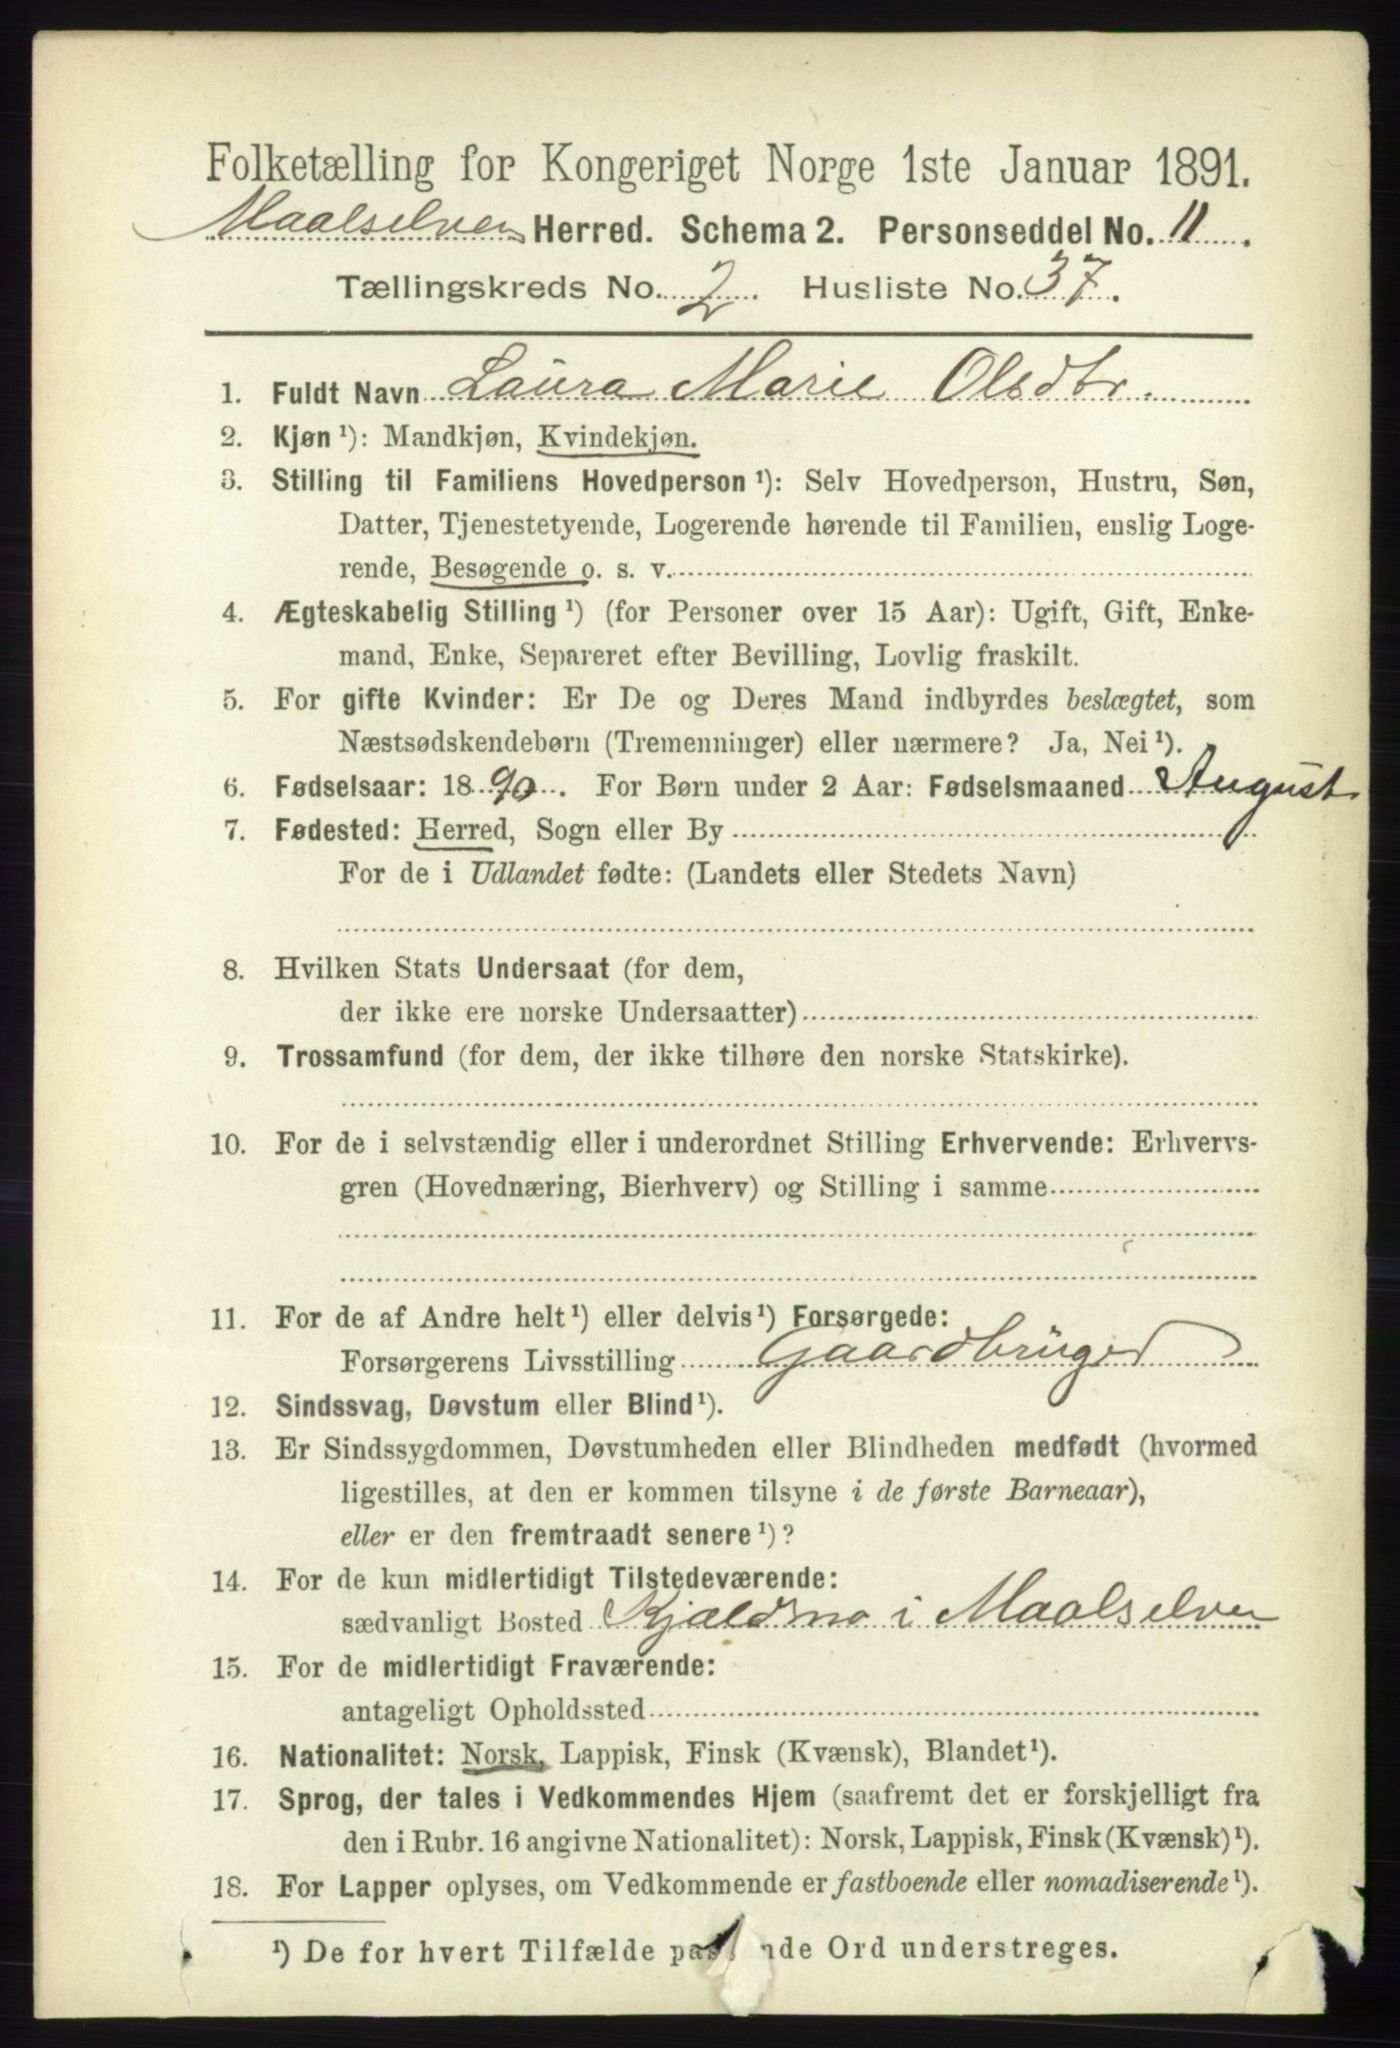 Folketælling for Kongeriget Norge 1ste Januar 1891.
Maalselven Herred. Schema 2. Personseddel No. 11.
Tællingskreds No. 2. Husliste No. 37.
1. Fuldt Navn Laura Marie Olsdtr.
2. Kjøn ¹): Mandkjøn, Kvindekjøn.
3. Stilling til Familiens Hovedperson ¹): Selv Hovedperson, Hustru, Søn,
Datter, Tjenestetyende, Logerende hørende til Familien, enslig Loge-
rende, Besøgende o. s. v.
4. Ægteskabelig Stilling ¹) (for Personer over 15 Aar): Ugift, Gift, Enke-
mand, Enke, Separeret efter Bevilling, Lovlig fraskilt.
5. For gifte Kvinder: Er De og Deres Mand indbyrdes beslægtet, som
Næstsødskendebørn (Tremenninger) eller nærmere? Ja, Nei ¹).
6. Fødselsaar: 1890. For Børn under 2 Aar: Fødselsmaaned August
7. Fødested: Herred, Sogn eller By
For de i Udlandet fødte: (Landets eller Stedets Navn)
8. Hvilken Stats Undersaat (for dem,
der ikke ere norske Undersaatter)
9. Trossamfund (for dem, der ikke tilhøre den norske Statskirke).
10. For de i selvstændig eller i underordnet Stilling Erhvervende: Erhvervs-
gren (Hovednæring, Bierhverv) og Stilling i samme
11. For de af Andre helt ¹) eller delvis ¹) Forsørgede:
Forsørgerens Livsstilling Gaardbruger
12. Sindssvag, Døvstum eller Blind ¹).
13. Er Sindssygdommen, Døvstumheden eller Blindheden medfødt (hvormed
ligestilles, at den er kommen tilsyne i de første Barneaar),
eller er den fremtraadt senere ¹)?
14. For de kun midlertidigt Tilstedeværende:
sædvanligt Bosted Kjældmo i Maalselven
15. For de midlertidigt Fraværende:
antageligt Opholdssted
16. Nationalitet: Norsk, Lappisk, Finsk (Kvænsk), Blandet ¹).
17. Sprog, der tales i Vedkommendes Hjem (saafremt det er forskjelligt fra
den i Rubr. 16 angivne Nationalitet): Norsk, Lappisk, Finsk (Kvænsk) ¹).
18. For Lapper oplyses, om Vedkommende er fastboende eller nomadiserende ¹).
¹) De for hvert Tilfælde passende Ord understreges.